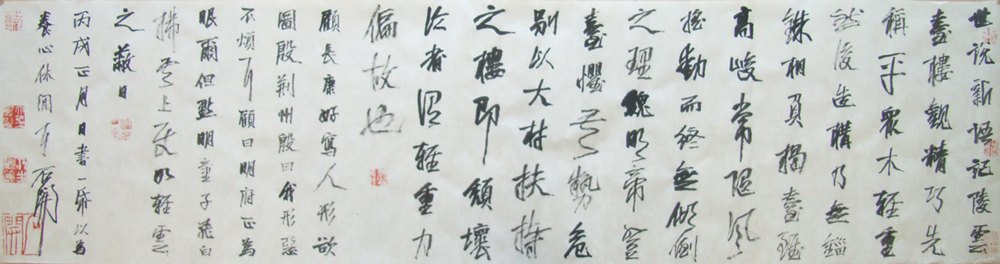 世説新語記陵雲
臺樓觀精巧先
稱平衆木輕重
然後造構乃無錙
銖相負揭臺雖
高峻常隨風
搖動而終無傾倒
之理魏明帝登
臺懼其勢危
別以大材扶持
之樓即頹壞
論者謂輕重力
偏故也
顧長康好寫人形欲
圖殷荊州殷曰我形惡
不煩耳顧曰明府正為
眼爾但點明童子飛白
拂其上便如輕雲
之蔽日
丙戌正月日書一帋以為
養心休閒